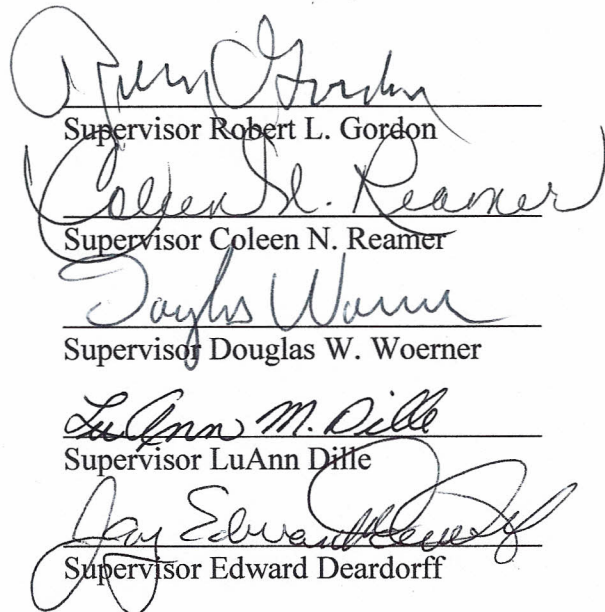 Gordon
Supervisor Robert L. Gordon
Coleen N. Reamer
Supervisor Coleen N. Reamer
Douglas Woerner
Supervisor Douglas W. Woerner
LuAnn M. Dille
Supervisor LuAnn Dille
Jay Edward Deardorff
Supervisor Edward Deardorff